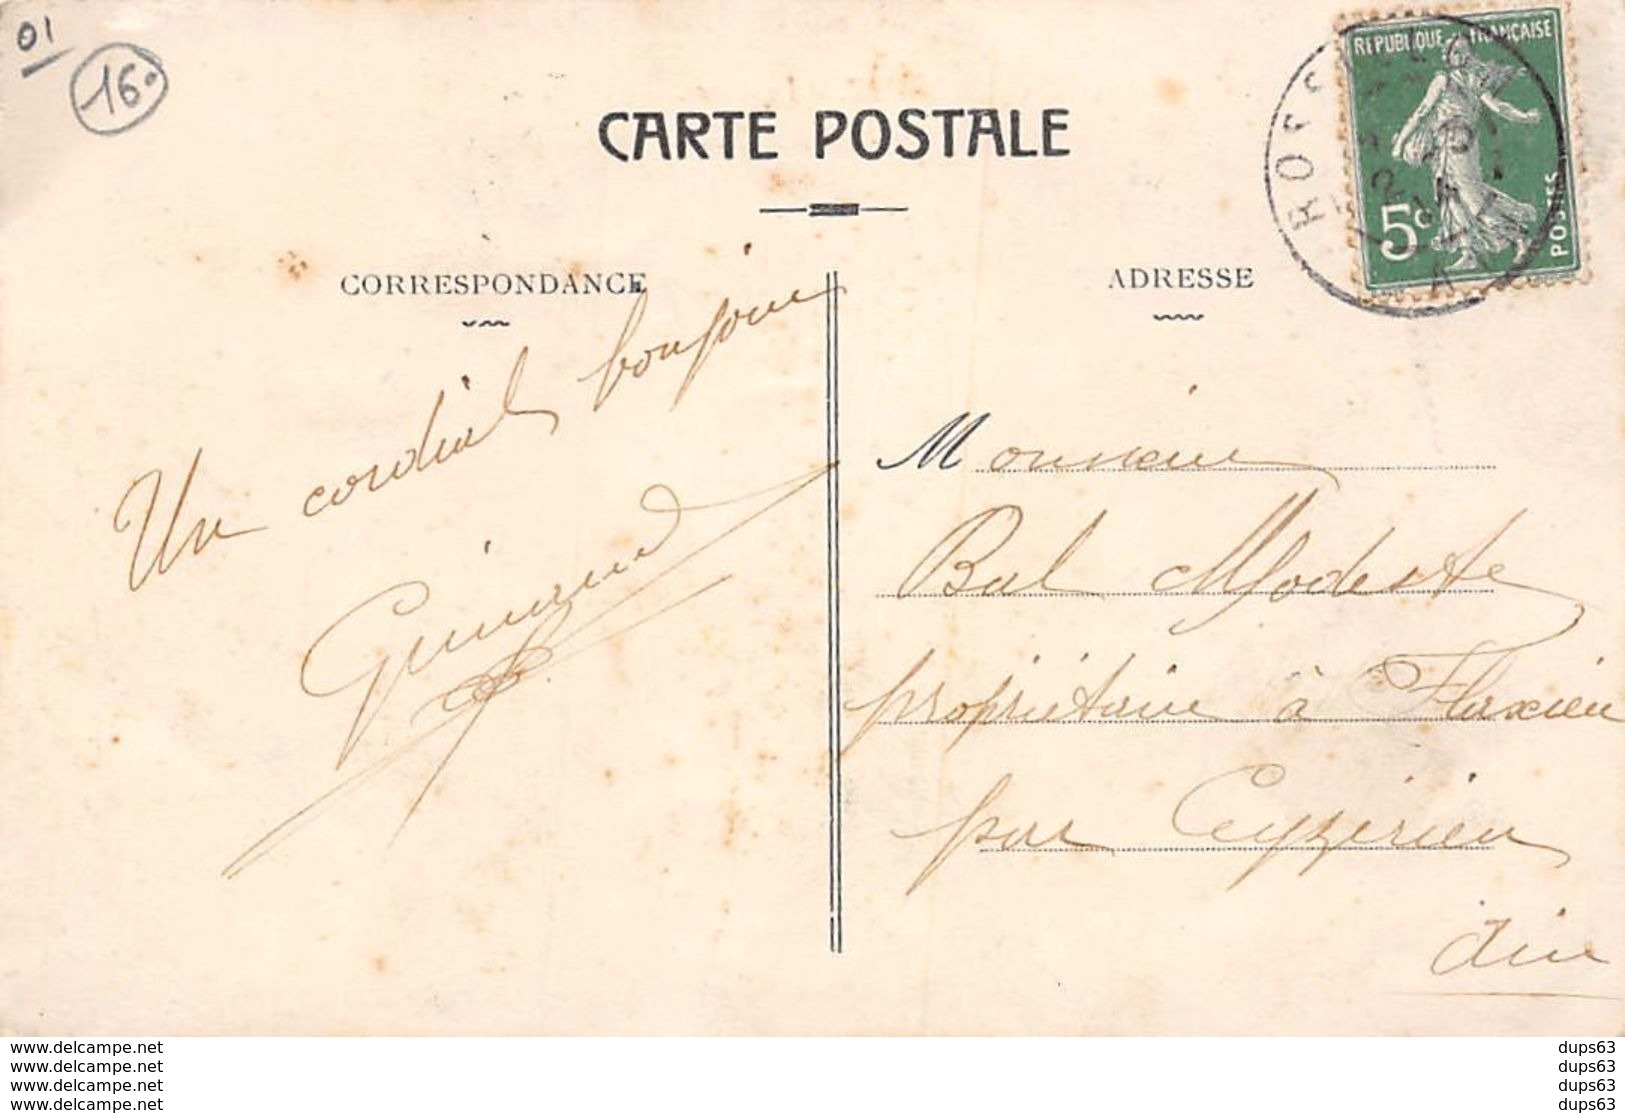 01
16°
CARTE POSTALE
CORRESPONDANCE
ADRESSE
REPUBLIQUE FRANÇAISE
5c
POSTES
Un cordial bonjour
Monsieur
Bal Modeste
propriétaire à Flaxieu
par Ceyzérieu
Ain
www.delcampe.net
www.delcampe.net
www.delcampe.net
www.delcampe.net
dups63
dups63
dups63
dups63